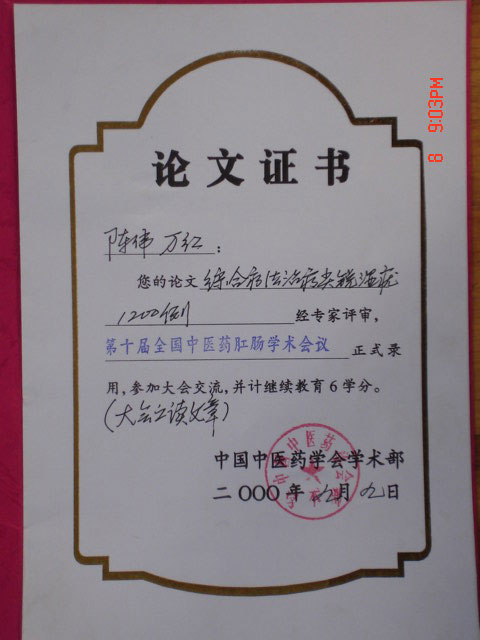 论文证书
陈伟 万红：
您的论文综合疗法治疗尖锐湿疣
1200例 经专家评审，
第十届全国中医药肛肠学术会议 正式录
用，参加大会交流，并计继续教育6学分。
（大会宣读文章）
中国中医药学会学术部
二000年 月九日
8 9:03PM